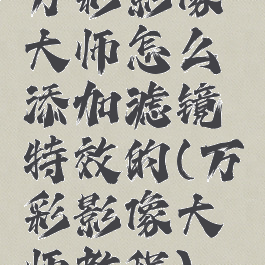 万彩影像
大师怎么
添加滤镜
特效的(万
彩影像大
师教程)